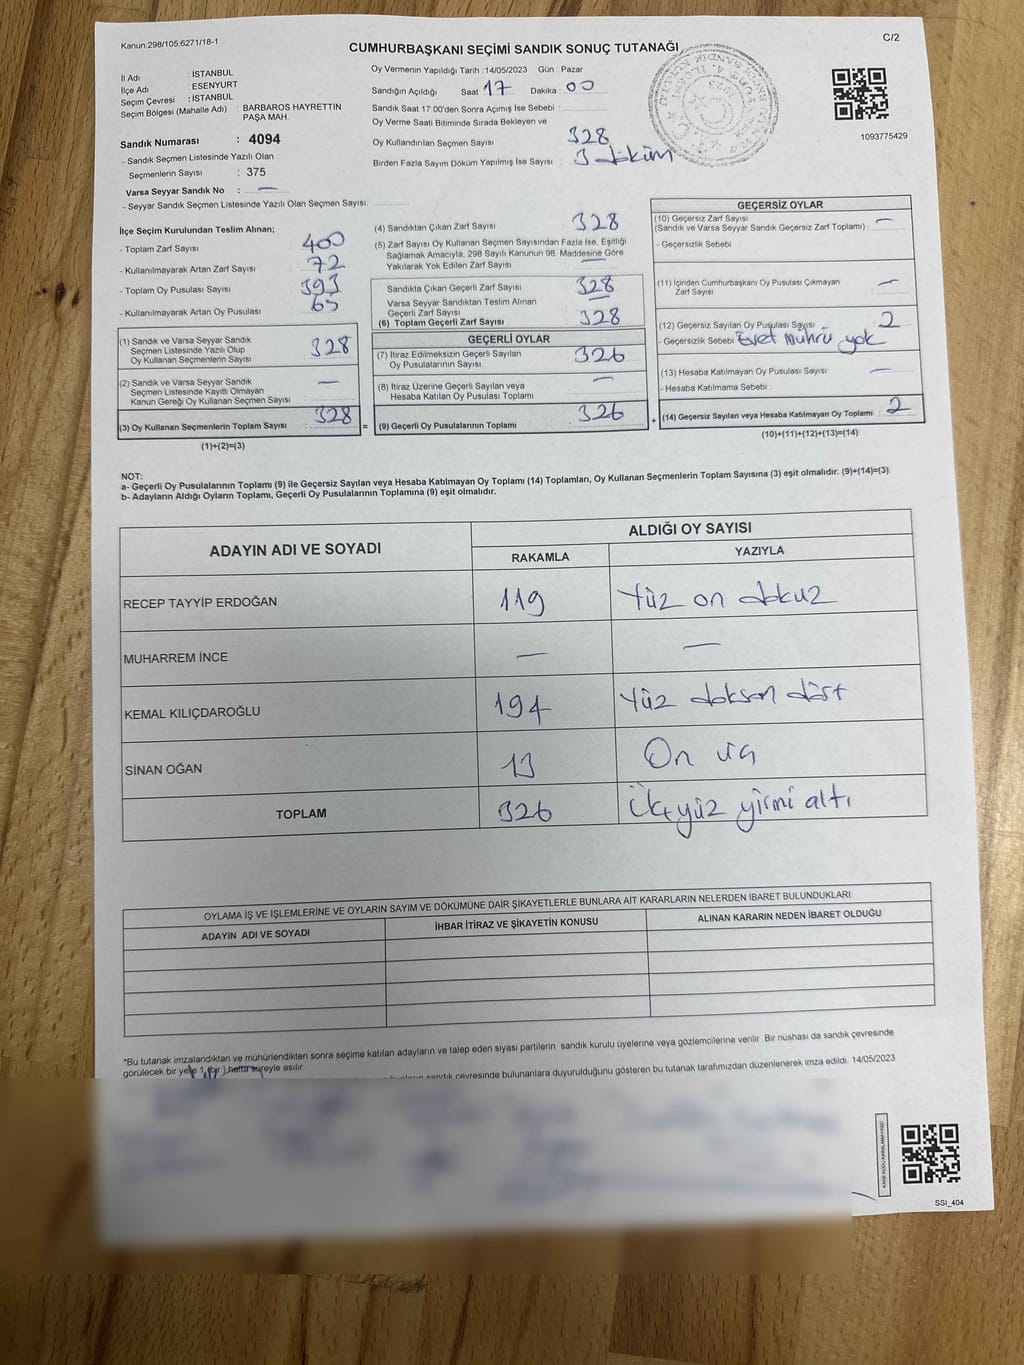 Kanun:298/105,6271/18-1
C/2
CUMHURBAŞKANI SEÇİMİ SANDIK SONUÇ TUTANAĞI
İl Adı : İSTANBUL
İlçe Adı : ESENYURT
Seçim Çevresi : İSTANBUL
Seçim Bölgesi (Mahalle Adı) : BARBAROS HAYRETTİN PAŞA MAH.
Sandık Numarası : 4094
- Sandık Seçmen Listesinde Yazılı Olan
Seçmenlerin Sayısı : 375
Varsa Seyyar Sandık No : —
- Seyyar Sandık Seçmen Listesinde Yazılı Olan Seçmen Sayısı:
Oy Vermenin Yapıldığı Tarih : 14/05/2023 Gün : Pazar
Sandığın Açıldığı Saat : 17 Dakika : 00
Sandık Saat 17:00'den Sonra Açımış İse Sebebi :
Oy Verme Saati Bitiminde Sırada Bekleyen ve
Oy Kullandırılan Seçmen Sayısı : 328
Birden Fazla Sayım Döküm Yapılmış İse Sayısı : 3 döküm
1093775429
İlçe Seçim Kurulundan Teslim Alınan;
- Toplam Zarf Sayısı : 400
- Kullanılmayarak Artan Zarf Sayısı : 72
- Toplam Oy Pusulası Sayısı : 393
- Kullanılmayarak Artan Oy Pusulası : 65
(1) Sandık ve Varsa Seyyar Sandık
Seçmen Listesinde Yazılı Olup
Oy Kullanan Seçmenlerin Sayısı : 328
(2) Sandık ve Varsa Seyyar Sandık
Seçmen Listesinde Kayıtlı Olmayan
Kanun Gereği Oy Kullanan Seçmen Sayısı : —
(3) Oy Kullanan Seçmenlerin Toplam Sayısı : 328
(1)+(2)=(3)
=
(4) Sandıktan Çıkan Zarf Sayısı : 328
(5) Zarf Sayısı Oy Kullanan Seçmen Sayısından Fazla İse, Eşitliği
Sağlamak Amacıyla, 298 Sayılı Kanunun 98. Maddesine Göre
Yakılarak Yok Edilen Zarf Sayısı : —
Sandıkta Çıkan Geçerli Zarf Sayısı : 328
Varsa Seyyar Sandıktan Teslim Alınan
Geçerli Zarf Sayısı : —
(6) Toplam Geçerli Zarf Sayısı : 328
GEÇERLİ OYLAR
(7) İtiraz Edilmeksizin Geçerli Sayılan
Oy Pusulalarının Sayısı : 326
(8) İtiraz Üzerine Geçerli Sayılan veya
Hesaba Katılan Oy Pusulası Toplamı : —
(9) Geçerli Oy Pusulalarının Toplamı : 326
+
GEÇERSİZ OYLAR
(10) Geçersiz Zarf Sayısı : —
(Sandık ve Varsa Seyyar Sandık Geçersiz Zarf Toplamı) :
- Geçersizlik Sebebi :
(11) İçinden Cumhurbaşkanı Oy Pusulası Çıkmayan
Zarf Sayısı : —
(12) Geçersiz Sayılan Oy Pusulası Sayısı : 2
- Geçersizlik Sebebi : Evet Mührü yok
(13) Hesaba Katılmayan Oy Pusulası Sayısı : —
- Hesaba Katılmama Sebebi :
(14) Geçersiz Sayılan veya Hesaba Katılmayan Oy Toplamı : 2
(10)+(11)+(12)+(13)=(14)
NOT:
a- Geçerli Oy Pusulalarının Toplamı (9) ile Geçersiz Sayılan veya Hesaba Katılmayan Oy Toplamı (14) Toplamları, Oy Kullanan Seçmenlerin Toplam Sayısına (3) eşit olmalıdır. (9)+(14)=(3)
b- Adayların Aldığı Oyların Toplamı, Geçerli Oy Pusulalarının Toplamına (9) eşit olmalıdır.
ADAYIN ADI VE SOYADI
ALDIĞI OY SAYISI
RAKAMLA YAZIYLA
RECEP TAYYİP ERDOĞAN 119 Yüz on dokuz
MUHARREM İNCE — —
KEMAL KILIÇDAROĞLU 194 Yüz doksan dört
SİNAN OĞAN 13 On üç
TOPLAM 326 Üçyüz yirmi altı
OYLAMA İŞ VE İŞLEMLERİNE VE OYLARIN SAYIM VE DÖKÜMÜNE DAİR ŞİKAYETLERLE BUNLARA AİT KARARLARIN NELERDEN İBARET BULUNDUKLARI
ADAYIN ADI VE SOYADI İHBAR İTİRAZ VE ŞİKAYETİN KONUSU ALINAN KARARIN NEDEN İBARET OLDUĞU
*Bu tutanak imzalandıktan ve mühürlendikten sonra seçime katılan adayların ve talep eden siyasi partilerin sandık kurulu üyelerine veya gözlemcilerine verilir. Bir nüshası da sandık çevresinde
görülecek bir yere 1 (bir ) hafta süreyle asılır.
sandık çevresinde bulunanlara duyurulduğunu gösteren bu tutanak tarafımızdan düzenlenerek imza edildi. 14/05/2023
SSI_404